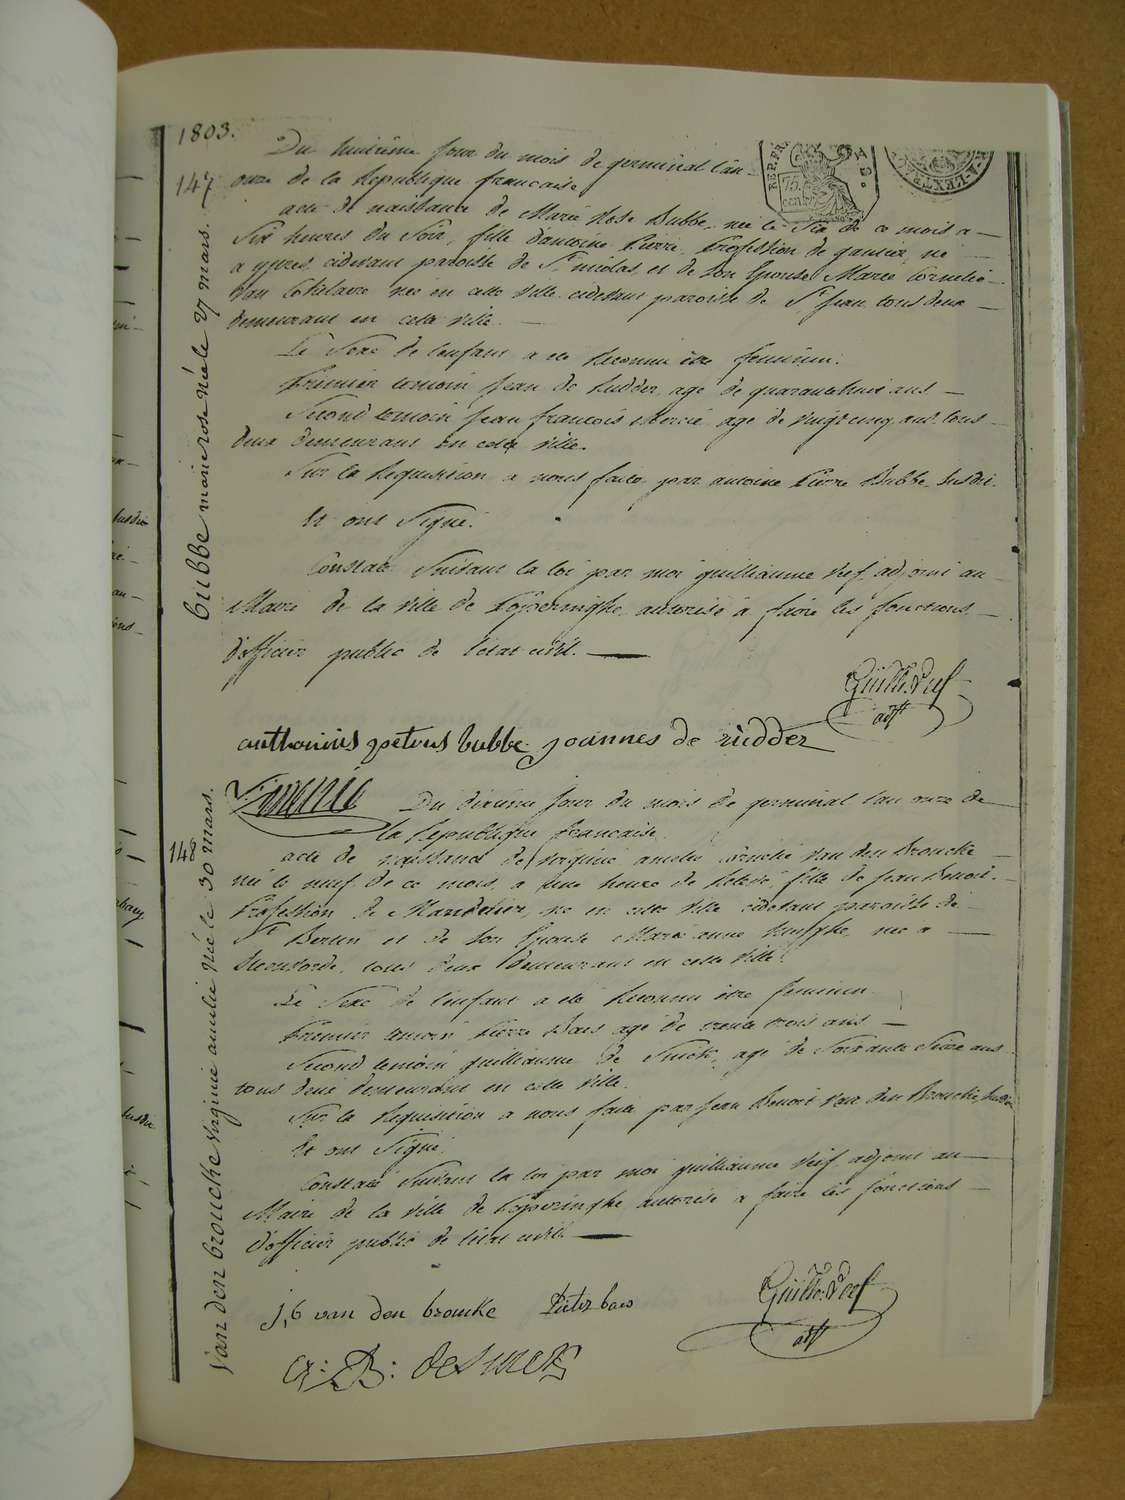 1803.
147
Bubbe marie rose née le 27 mars.
Du huitième jour du mois de germinal l'an
onze de la République francaise
acte de naissance de Marie Rose Bubbe, née le Six de ce mois a
Six heures du Soir, fille d'antoine Pierre, Profession de, né
a ypres, cidevant paroisse de St. nicolas, et de Son Epouse Marie Cornelie
van née en cette ville cidevant paroisse de St. Jean tous deux
demeurant en cette ville.
Le Sexe de l'enfant a été Reconnu être feminin.
Premier temoin Jean de Rudder, agé de quarantehuit ans
Second temoin Jean francois agé de vingtcinq ans, tous
deux demeurant en cette ville.
Sur la Requisition a nous faite par antoine Pierre Bubbe Susdit.
Et ont Signé.
Constaté Suivant la loi par moi guilliaume adjoint au
Maire de la ville de Poperinghe, autorisé a faire les fonctions
d'officier public de l'état civil.
adjt
anthonius petrus bubbe joannes de rudder
148
van den broucke virginie amelie née le 30 mars.
Du dixième jour du mois de germinal l'an onze de
la République francaise.
acte de naissance de virginie amelie van den Broucke
née le neuf de ce mois, a une heure de, fille de Jean Benoit
Profession de, né en cette ville cidevant paroisse de
St. Bertin et de Son Epouse Marie anne, née a
tous deux Demeurant en cette ville.
Le Sexe de l'enfant a été Reconnu être feminin
Premier temoin Pierre Baes agé de trente trois ans
Second temoin guilliaume de agé de Soixante Seize ans
tous deux demeurant en cette ville.
Sur la Requisition a nous faite par Jean Benoit van den Broucke, Susdit
Et ont Signé.
Constaté Suivant la loi par moi guilliaume adjoint au
Maire de la ville de Poperinghe, autorisé a faire les fonctions
d'officier public de l'état civil.
j,b van den broucke Pieter baes
adjt